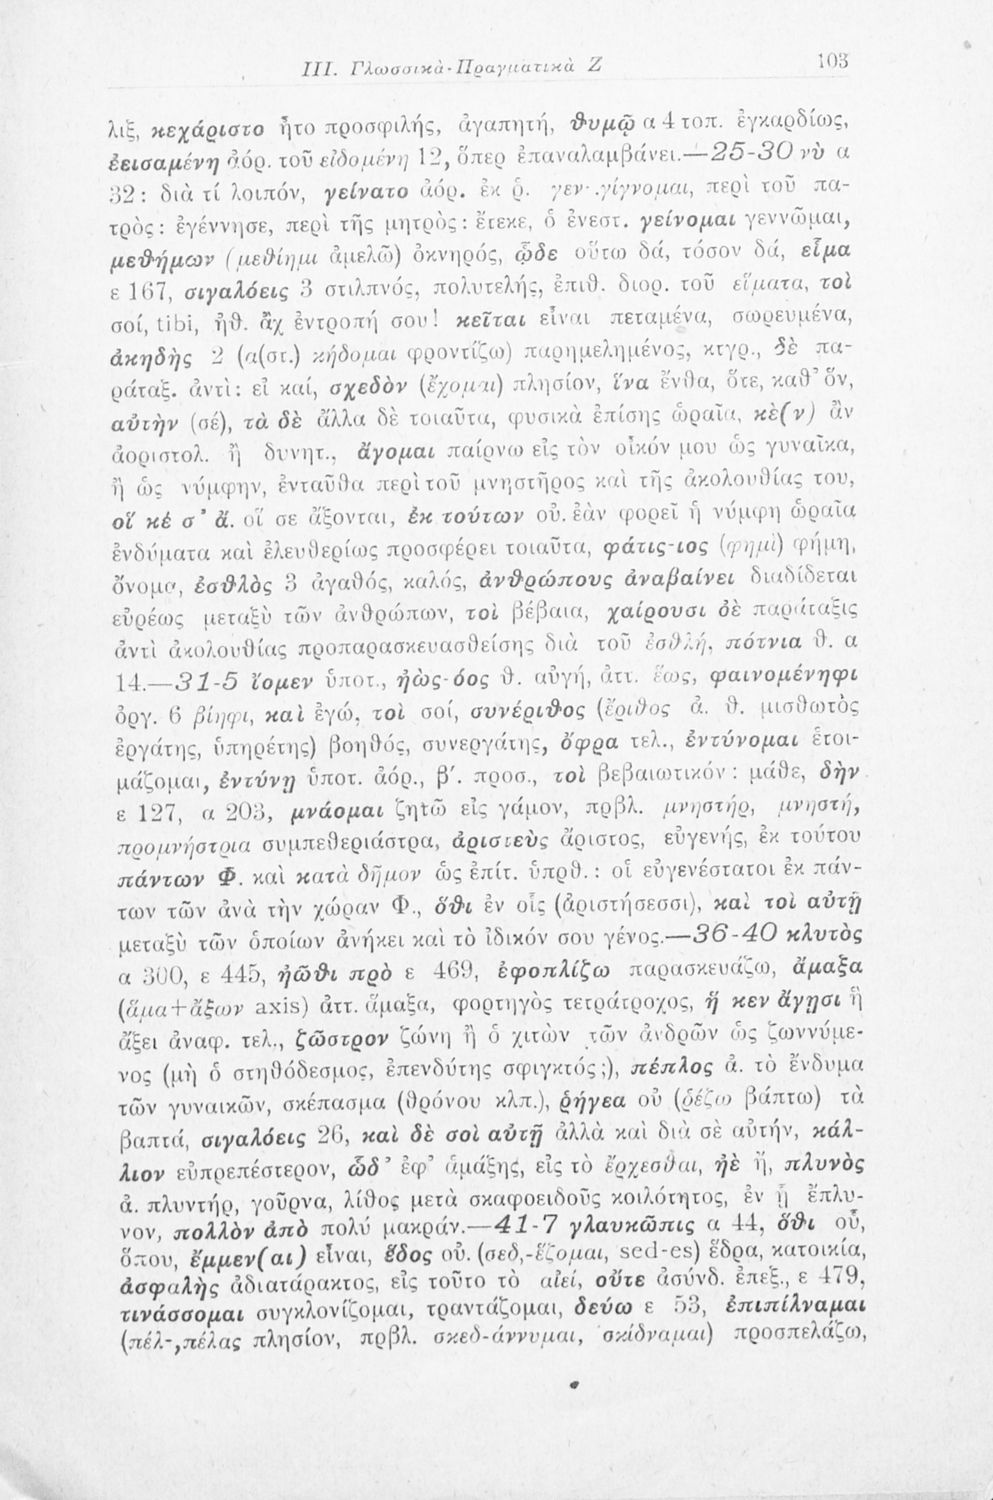 III. Γλωσσικὰ-Πραγματικὰ Ζ 103
λιξ, κεχάριστο ἦτο προσφιλής, ἀγαπητή, θυμῷ α 4 τοπ. ἐγκαρδίως,
ἐεισαμένη ἀόρ. τοῦ εἰδομένη 12, ὅπερ ἐπαναλαμβάνει.—25-30 νὺ α
32: διὰ τί λοιπόν, γείνατο ἀόρ. ἐκ ῥ. γεν- γίγνομαι, περὶ τοῦ πα-
τρὸς: ἐγέννησε, περὶ τῆς μητρὸς: ἔτεκε, ὁ ἐνεστ. γείνομαι γεννῶμαι,
μεθήμων (μεθίημι ἀμελῶ) ὀκνηρός, ᾧδε οὕτω δά, τόσον δά, εἷμα
ε 167, σιγαλόεις 3 στιλπνός, πολυτελής, ἐπιθ. διορ. τοῦ εἵματα, τοὶ
σοί, tibi, ἠθ. ἂχ ἐντροπή σου! κεῖται εἶναι πεταμένα, σωρευμένα,
ἀκηδὴς 2 (α(στ.) κήδομαι φροντίζω) παρημελημένος, κτγρ., δὲ πα-
ράταξ. ἀντὶ: εἰ καί, σχεδὸν (ἔχομαι) πλησίον, ἵνα ἔνθα, ὅτε, καθ᾽ ὅν,
αὐτὴν (σέ), τὰ δὲ ἄλλα δὲ τοιαῦτα, φυσικὰ ἐπίσης ὡραῖα, κὲ(ν) ἂν
ἀοριστολ. ἢ δυνητ., ἄγομαι παίρνω εἰς τὸν οἶκόν μου ὡς γυναῖκα,
ἢ ὡς νύμφην, ἐνταῦθα περὶ τοῦ μνηστῆρος καὶ τῆς ἀκολουθίας του,
οἵ κέ σ᾽ ἄ. οἵ σε ἄξονται, ἐκ τούτων οὐ. ἐὰν φορεῖ ἡ νύμφη ὡραῖα
ἐνδύματα καὶ ἐλευθερίως προσφέρει τοιαῦτα, φάτις-ιος (φημὶ) φήμη,
ὄνομα, ἐσθλὸς 3 ἀγαθός, καλός, ἀνθρώπους ἀναβαίνει διαδίδεται
εὐρέως μεταξὺ τῶν ἀνθρώπων, τοὶ βέβαια, χαίρουσι δὲ παράταξις
ἀντὶ ἀκολουθίας προπαρασκευασθείσης διὰ τοῦ ἐσθλή, πότνια θ. α
14.—31-5 ἴομεν ὑποτ., ἠὼς-όος θ. αὐγή, ἀττ. ἕως, φαινομένηφι
ὀργ. 6 βίηφι, καὶ ἐγώ, τοὶ σοί, συνέριθος (ἔριθος ἀ. θ. μισθωτὸς
ἐργάτης, ὑπηρέτης) βοηθός, συνεργάτης, ὄφρα τελ., ἐντύνομαι ἑτοι-
μάζομαι, ἐντύνῃ ὑποτ. ἀόρ., β΄. προσ., τοὶ βεβαιωτικόν: μάθε, δὴν
ε 127, α 203, μνάομαι ζητῶ εἰς γάμον, πρβλ. μνηστήρ, μνηστή,
προμνήστρια συμπεθεριάστρα, ἀριστεὺς ἄριστος, εὐγενής, ἐκ τούτου
πάντων Φ. καὶ κατὰ δῆμον ὡς ἐπίτ. ὑπρθ.: οἱ εὐγενέστατοι ἐκ πάν-
των τῶν ἀνὰ τὴν χώραν Φ., ὅθι ἐν οἷς (ἀριστήσεσσι), καὶ τοὶ αὐτῇ
μεταξὺ τῶν ὁποίων ἀνήκει καὶ τὸ ἰδικόν σου γένος.—36-40 κλυτὸς
α 300, ε 445, ἠῶθι πρὸ ε 469, ἐφοπλίζω παρασκευάζω, ἄμαξα
(ἅμα+ἄξων axis) ἀττ. ἅμαξα, φορτηγὸς τετράτροχος, ἥ κεν ἄγῃσι ἣ
ἄξει ἀναφ. τελ., ζῶστρον ζώνη ἢ ὁ χιτὼν τῶν ἀνδρῶν ὡς ζωννύμε-
νος (μὴ ὁ στηθόδεσμος, ἐπενδύτης σφιγκτός;), πέπλος ἀ. τὸ ἔνδυμα
τῶν γυναικῶν, σκέπασμα (θρόνου κλπ.), ῥήγεα οὐ (ῥέζω βάπτω) τὰ
βαπτά, σιγαλόεις 26, καὶ δὲ σοὶ αὐτῇ ἀλλὰ καὶ διὰ σὲ αὐτήν, κάλ-
λιον εὐπρεπέστερον, ὧδ᾽ ἐφ᾽ ἁμάξης, εἰς τὸ ἔρχεσθαι, ἠὲ ἤ, πλυνὸς
ἀ. πλυντήρ, γοῦρνα, λίθος μετὰ σκαφοειδοῦς κοιλότητος, ἐν ᾗ ἔπλυ-
νον, πολλὸν ἀπὸ πολὺ μακράν.—41-7 γλαυκῶπις α 44, ὅθι οὗ,
ὅπου, ἔμμεν(αι) εἶναι, ἕδος οὐ. (σεδ,-ἕζομαι, sed-es) ἕδρα, κατοικία,
ἀσφαλὴς ἀδιατάρακτος, εἰς τοῦτο τὸ αἰεί, οὔτε ἀσύνδ. ἐπεξ., ε 479,
τινάσσομαι συγκλονίζομαι, τραντάζομαι, δεύω ε 53, ἐπιπίλναμαι
(πέλ-, πέλας πλησίον, πρβλ. σκεδ-άννυμαι, σκίδναμαι) προσπελάζω,